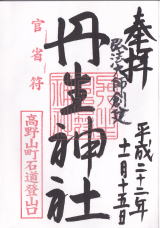 奉拝
弘法大師創建
平成二十二年
十一月十五日
丹生神社
官省符
高野山町石道登山口